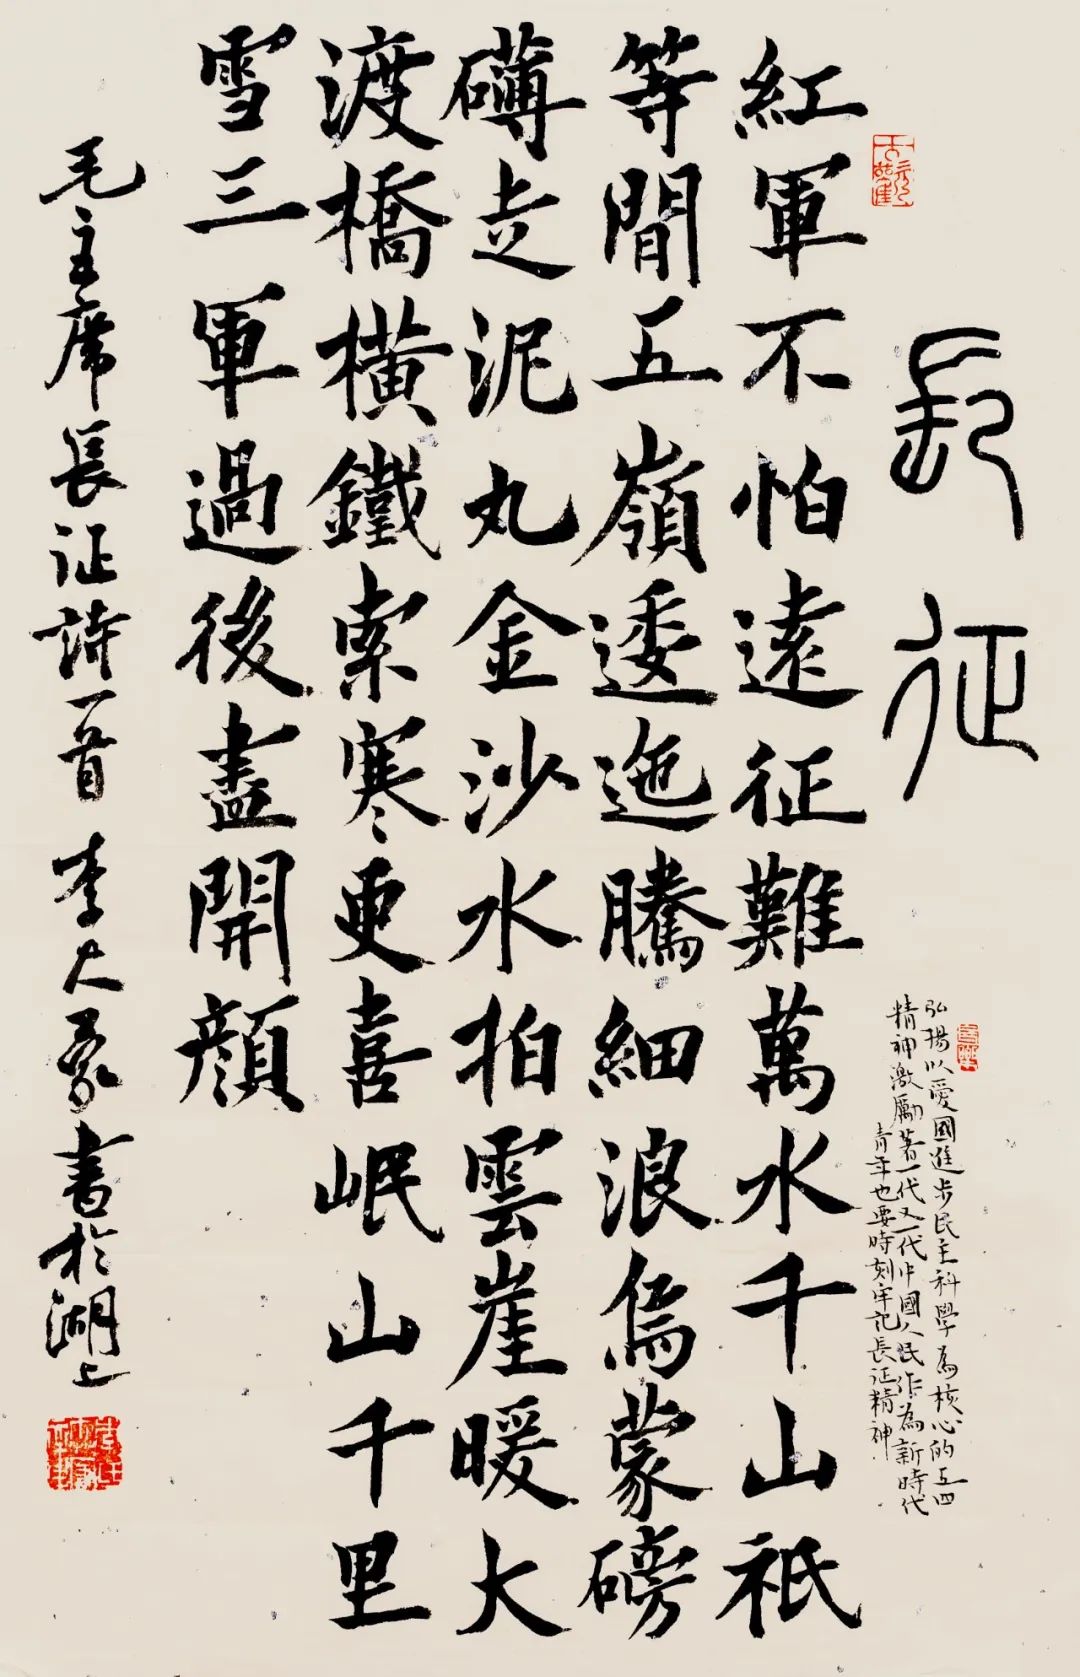 長征
弘揚以愛國進步民主科學為核心的五四
精神激勵著一代又一代中國人民作為新時代
青年也要時刻牢記長征精神
紅軍不怕遠征難萬水千山祇
等間五嶺逶迤騰細浪烏蒙磅
礴走泥丸金沙水拍雲崖暖大
渡橋橫鐵索寒更喜岷山千里
雪三軍過後盡開顏
毛主席長征詩一首 李大 書於湖上